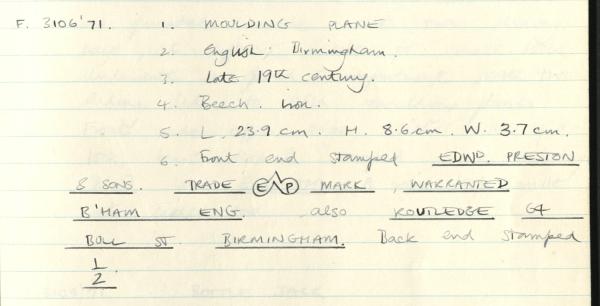 F. 3106'71. 1. MOULDING PLANE
2. English; Birmingham.
3. Late 19th century.
4. Beech. Iron.
5. L. 23.9 cm. H. 8.6 cm. W. 3.7 cm.
6. Front end stamped EDWD. PRESTON
& SONS. TRADE E P MARK, WARRANTED
B'HAM ENG. also ROUTLEDGE 64
BULL ST. BIRMINGHAM. Back end stamped
1/2.